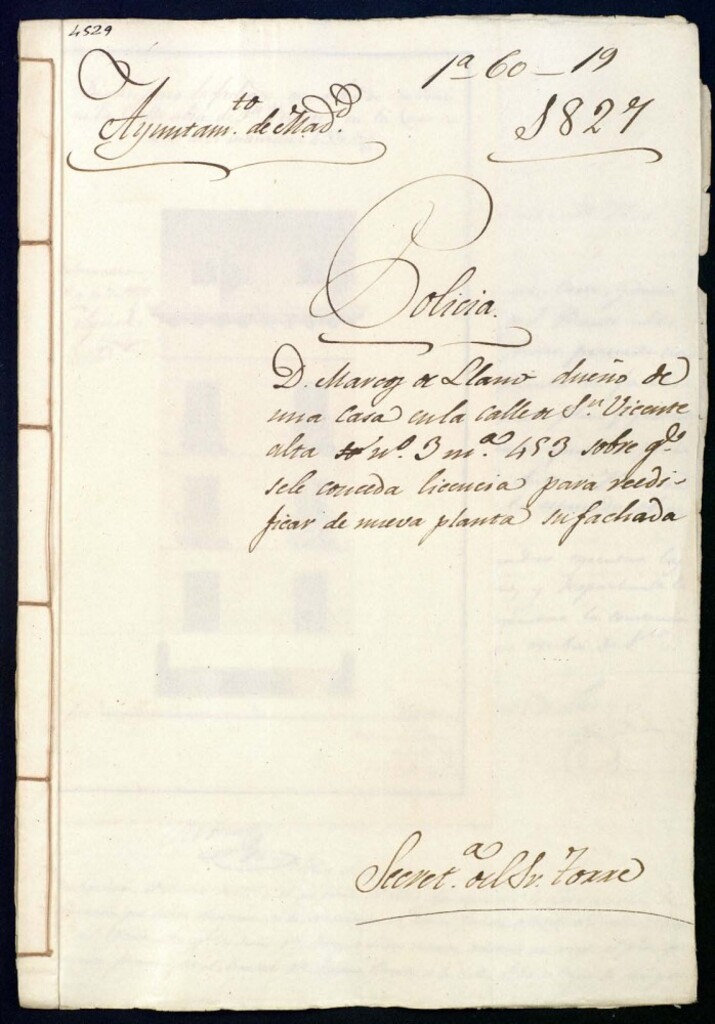 4529
1ª 60-19
Ayuntam.to de Mad.d
1827
Policia.
D. Marcos de Llano dueño de
una Casa en la calle de S.n Vicente
alta nº. 3 m.ª 453 sobre q.e
sele conceda licencia para reedi-
ficar de nueva planta su fachada
Secret.ª del Sr. Torre